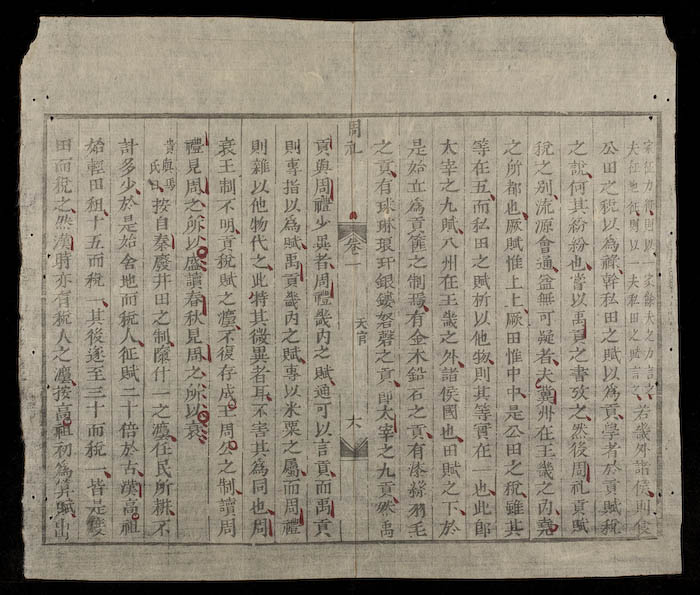 家征力行則以 家餘夫之力言之
夫征地征則以 夫私田之賦言之
若畿外諸侯則
公田之稅以為祿幹私田之賦以為貢學者於貢賦稅
之說何其紛紛也嘗以禹貢之書攷之然後周礼貢賦
稅之別流源會通益無可疑者夫冀州在王畿之内堯
之所都也厥賦惟上上厥田惟中中是公田之稅雖其
等在五而私田之賦析以他物則其等實在一也此即
太宰之九賦八州在王畿之外諸侯國也田賦之下於
是始立為貢篚之制有金木鉛石之貢有漆絲羽毛
之貢有球琳琅玕銀鏤砮磬之貢即太宰之九貢然禹
周礼 卷一 天官 六
貢與周禮少異者周禮畿内之賦通可以言貢而禹貢
則專指以為賦禹貢畿内之賦專以米粟之屬而周禮
則雜以他物代之此特其微異者耳不害其為同也周
衰王制不明貢稅賦之灋不復存成王周公之制讀周
禮見周之所以盛讀春秋見周之所以衰
貴與馬氏曰按自秦廢井田之制隳什一之灋任民所耕不
計多少於是始舍地而稅人征賦二十倍於古漢高祖
始輕田租十五而稅一其後遂至三十而稅一皆是
田而稅之然漢時亦有稅人之灋按高祖初為算賦出